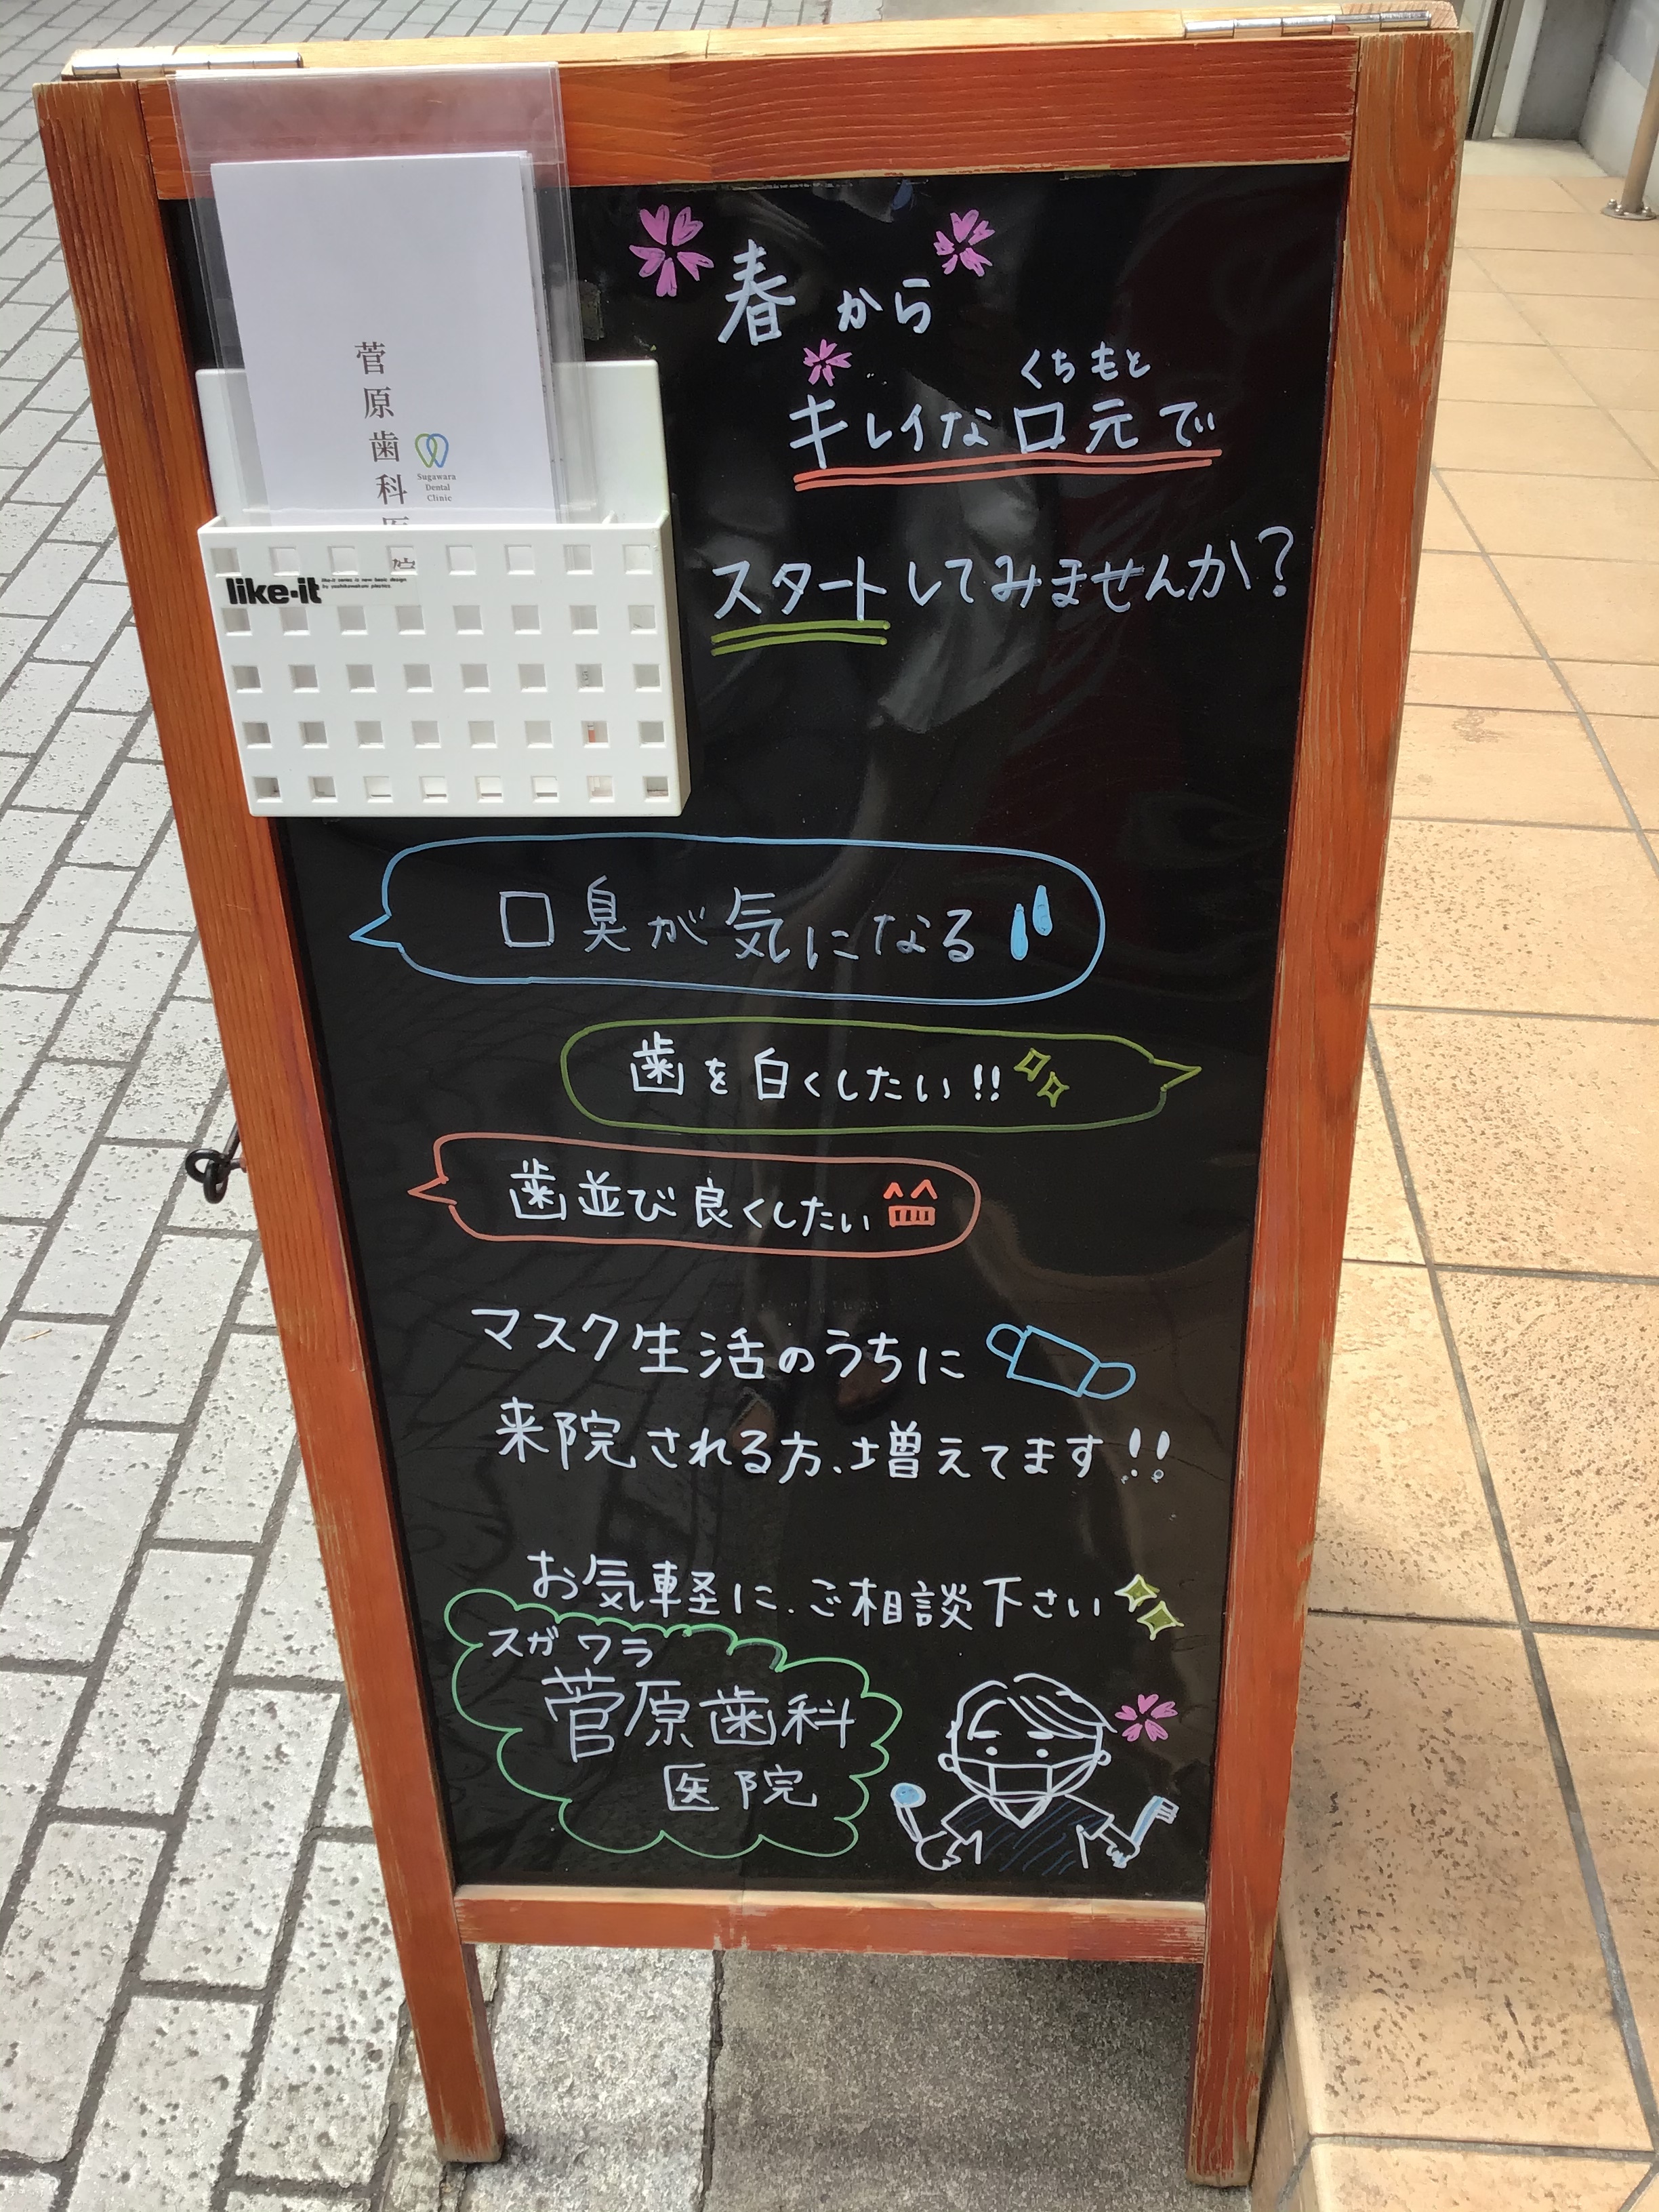 菅原歯科医院
Sugawara
Dental
Clinic
like-it
like-it series is new basic design
春から
くちもと
キレイな口元で
スタートしてみませんか?
口臭が気になる
歯を白くしたい!!
歯並び良くしたい
マスク生活のうちに
来院される方、増えてます!!
お気軽に、ご相談下さい
スガワラ
菅原歯科
医院